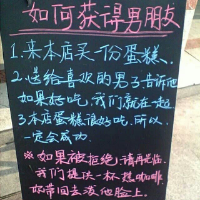 如何获得男朋友
1.来本店买一份蛋糕.
2.送给喜欢的男子告诉他
如果好吃,我们就在一起
3本店蛋糕很好吃,所以.
一定会成功.
※如果被拒绝,请再光临.
我们提供一杯热咖啡
你带回去泼他脸上.